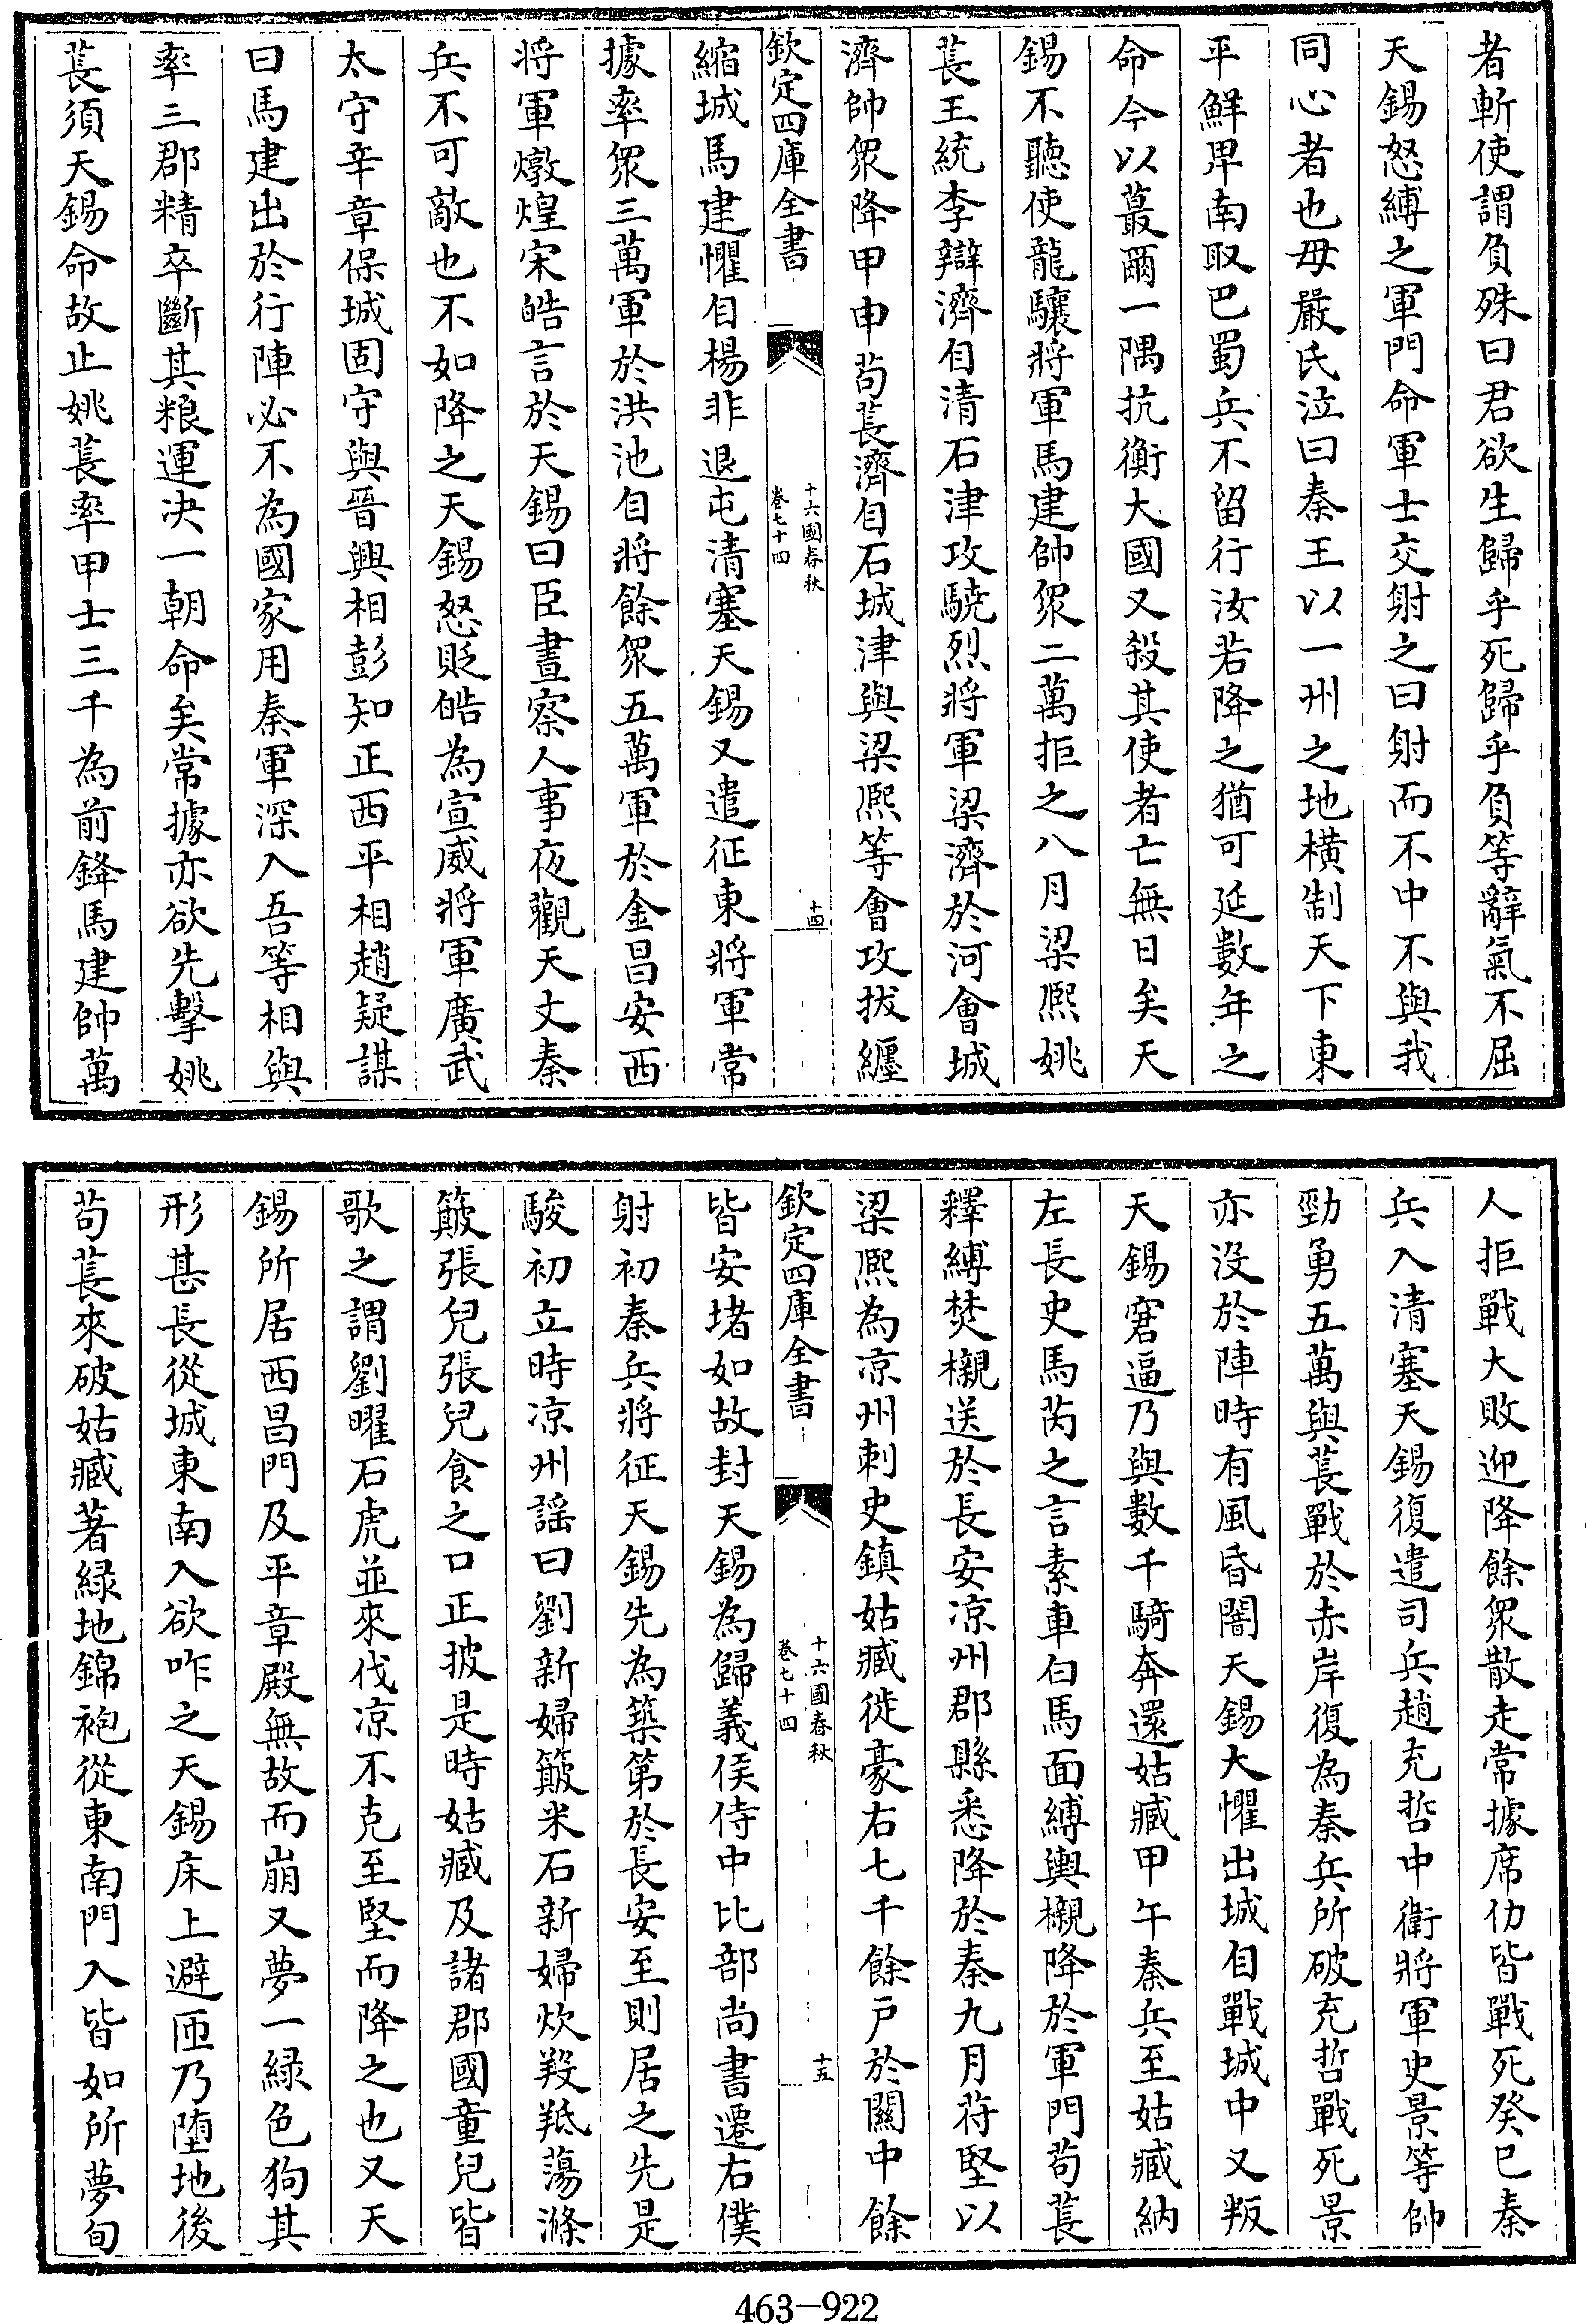 者斬使謂負殊曰君欲生歸乎死歸乎負等辭氣不屈
天錫怒縛之軍門命軍士交射之曰射而不中不與我
同心者也毋嚴氏泣曰秦王以一州之地橫制天下東
平鮮卑南取巴蜀兵不留行汝若降之猶可延數年之
命今以蕞爾一隅抗衡大國又殺其使者亡無日矣天
錫不聽使龍驤將軍馬建帥衆二萬拒之八月梁熙姚
萇王統李辯濟自清石津攻驍烈將軍梁濟於河會城
濟帥衆降甲申茍萇濟自石城津與梁熙等會攻拔纒
欽定四庫全書
十六國春秋
卷七十四
十四
縮城馬建懼自楊非退屯清塞天錫又遣征東將軍常
據率衆三萬軍於洪池自將餘衆五萬軍於金昌安西
將軍燉煌宋皓言於天錫曰臣晝察人事夜觀天文秦
兵不可敵也不如降之天錫怒貶皓為宣威將軍廣武
太守辛章保城固守與晉興相彭知正西平相趙疑謀
曰馬建出於行陣必不為國家用秦軍深入吾等相與
率三郡精卒斷其粮運决一朝命矣常據亦欲先擊姚
萇須天錫命故止姚萇率甲士三千為前鋒馬建帥萬
人拒戰大敗迎降餘衆散走常據席仂皆戰死癸巳秦
兵入清塞天錫復遣司兵趙充哲中衛將軍史景等帥
勁勇五萬與萇戰於赤岸復為秦兵所破充哲戰死景
亦没於陣時有風昏闇天錫大懼出城自戰城中又叛
天錫窘逼乃與數千騎奔還姑臧甲午秦兵至姑臧納
左長史馬芮之言素車白馬面縛輿櫬降於軍門茍萇
釋縛焚櫬送於長安凉州郡縣悉降於秦九月苻堅以
梁熙為凉州刺史鎮姑臧徙豪右七千餘户於關中餘
欽定四庫全書
十六國春秋
卷七十四
十五
皆安堵如故封天錫為歸義侯侍中比部尚書遷右僕
射初秦兵將征天錫先為築第於長安至則居之先是
駿初立時凉州謡曰劉新婦簸米石新婦炊羖羝蕩滌
簸張兒張兒食之口正披是時姑臧及諸郡國童兒皆
歌之謂劉曜石虎並來伐凉不克至堅而降之也又天
錫所居西昌門及平章殿無故而崩又夢一緑色狗其
形甚長從城東南入欲咋之天錫床上避匝乃墮地後
茍萇來破姑臧著緑地錦袍從東南門入皆如所夢旬
463-922